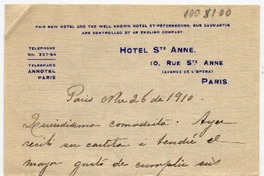 100 8100
THIS NEW HOTEL AND THE WELL KNOWN HOTEL ST-PÉTERSBOURG, RUE CAUMARTIN
ARE CONTROLLED BY AN ENGLISH COMPANY
TELEPHONE
No. 327-94
TELEGRAMS
ANNOTEL
PARIS
HOTEL STE ANNE.
10, RUE STE ANNE
(AVENUE DE L'OPÉRA)
PARIS.
Paris Nbre 26 de 1910.
Queridísimo comadrita: Ayer
recibí su cartita e tendré el
mayor gusto de cumplir sus